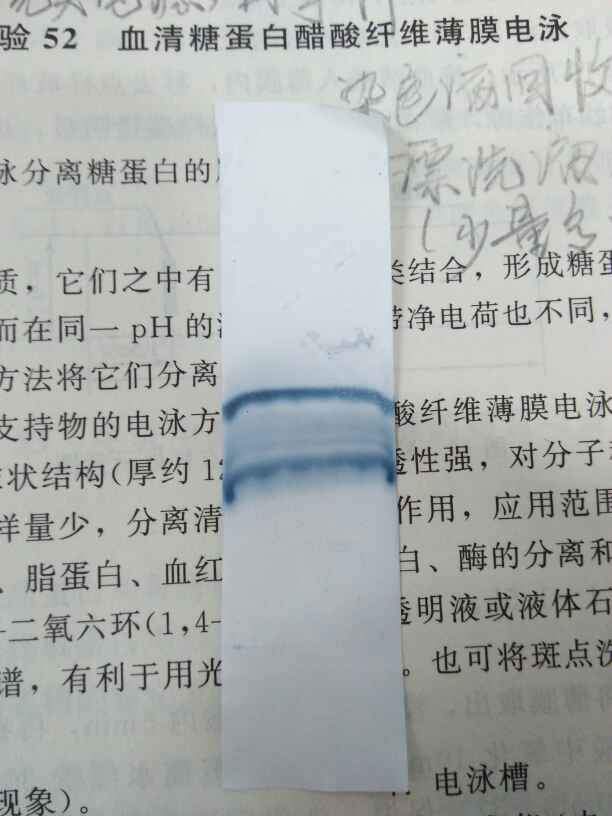 验 52 血清糖蛋白醋酸纤维薄膜电泳
染色液回收
漂洗液
(少量多
泳分离糖蛋白的
质，它们之中有 类结合，形成糖蛋
而在同一 pH 的 带净电荷也不同，
方法将它们分离
支持物的电泳方 酸纤维薄膜电泳
状结构(厚约 12 透性强，对分子
样量少，分离清 作用，应用范围
、脂蛋白、血红 白、酶的分离和
二氧六环(1,4- 透明液或液体石
谱，有利于用光 。也可将斑点洗
电泳槽。
现象)。